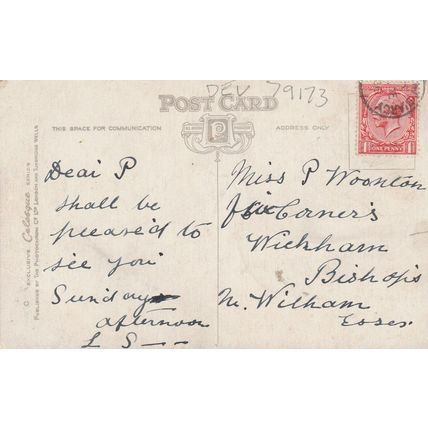 DEV 79173
POST CARD
THIS SPACE FOR COMMUNICATION
ADDRESS ONLY
Dear P
shall be
pleased to
see you
Sunday
afternoon
L S - -
Miss P Woonton
Corner's
Wickham
Bishops
Nr. Witham
Essex
ONE PENNY
EXCLUSIVE Celesque SERIES
PUBLISHED BY THE PHOTOCHROM CO LTD LONDON AND TUNBRIDGE WELLS